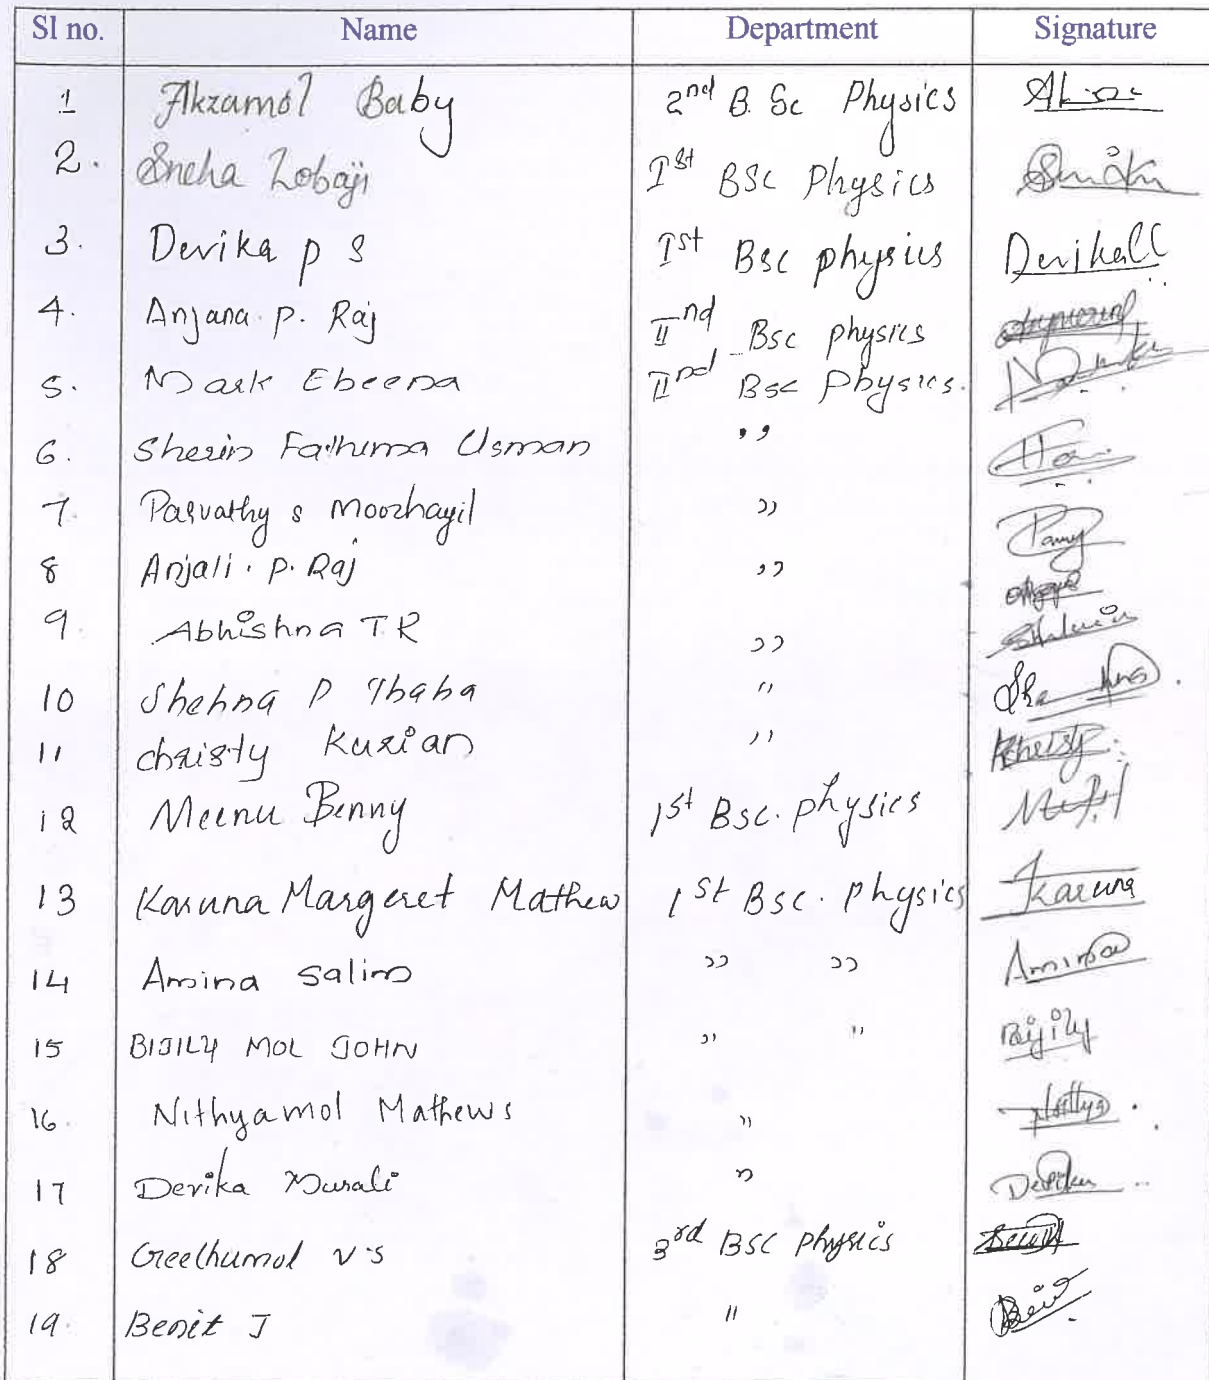 Sl no. Name Department Signature
1 Akzamol Baby 2nd B. Sc Physics
2. Sneha Lobaji Ist BSc Physics
3. Devika p s Ist Bsc physics Devika
4. Anjana. P. Raj IInd Bsc physics
5. Mark Ebeena IInd Bsc Physics.
6. Sherin Fathima Usman ,,
7. Parvathy s Moozhayil ,,
8 Anjali. P. Raj ,,
9. Abhishna T.R ,,
10 Shehna P Thaha ,,
11 christy Kurian ,,
12 Meenu Benny 1st Bsc. physics
13 Karuna Margeret Mathew 1st Bsc. Physics Karuna
14 Amina Salim ,, ,, Amina
15 BIJILY MOL JOHN ,, ,, Bijily
16. Nithyamol Mathews ,, Nithya
17 Devika Murali ,, Devika
18 Greethumol v s 3rd BSC physics
19. Benit J ,,